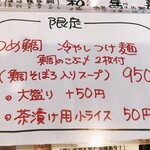 限定
つめ鯛 冷やしつけ麺
鯛めのこぶ〆2枚付
(鯛そぼろ入りスープ) 950
◦ 大盛り +50円
◦ 茶漬け用小ライス 50円